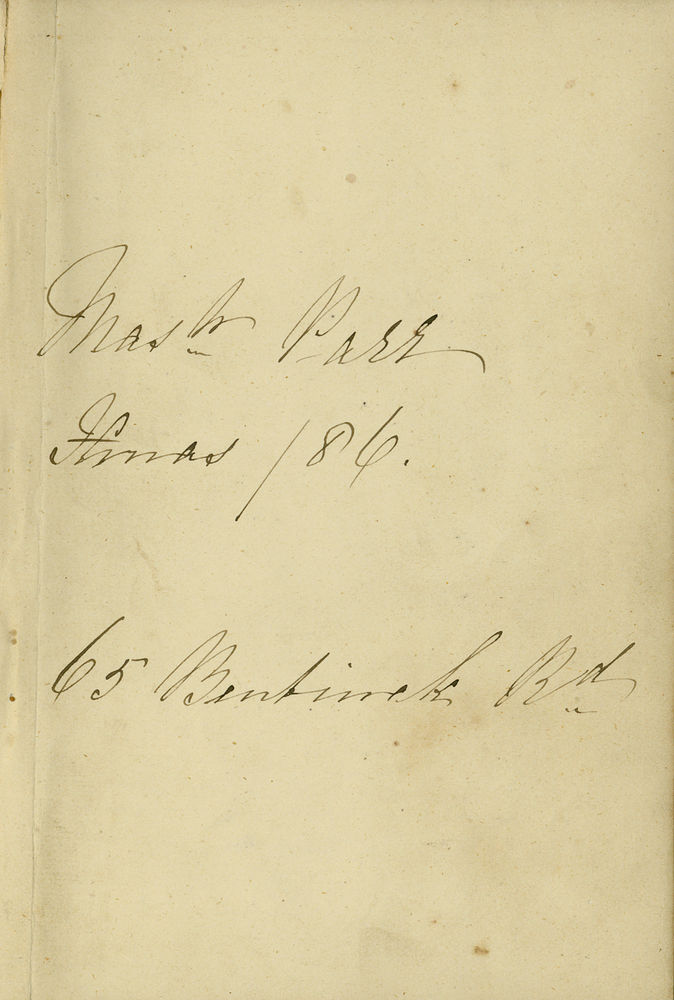 Mastr Parr
Xmas /86.
65 Bentinck Rd